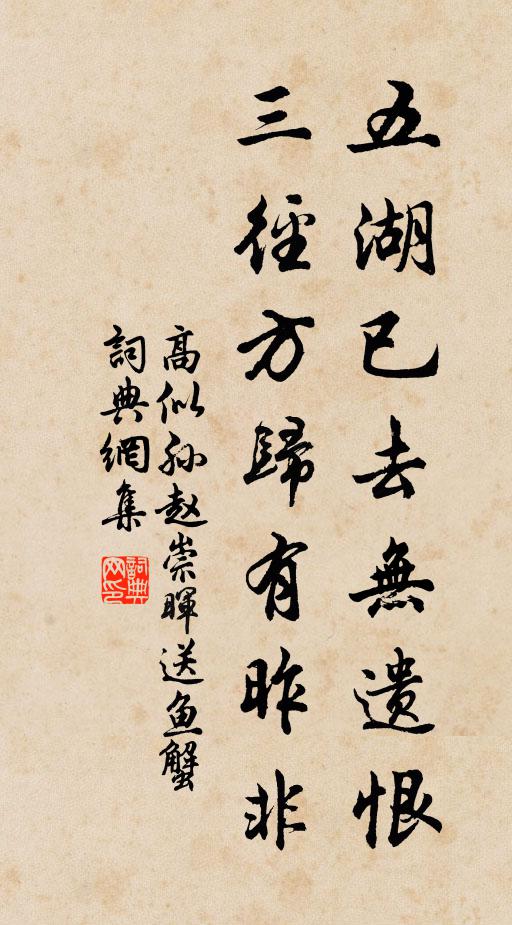 五湖已去無遺恨
三徑方歸有昨非
高似孙赵崇暉送鱼蟹
詞典網集
詞典网印